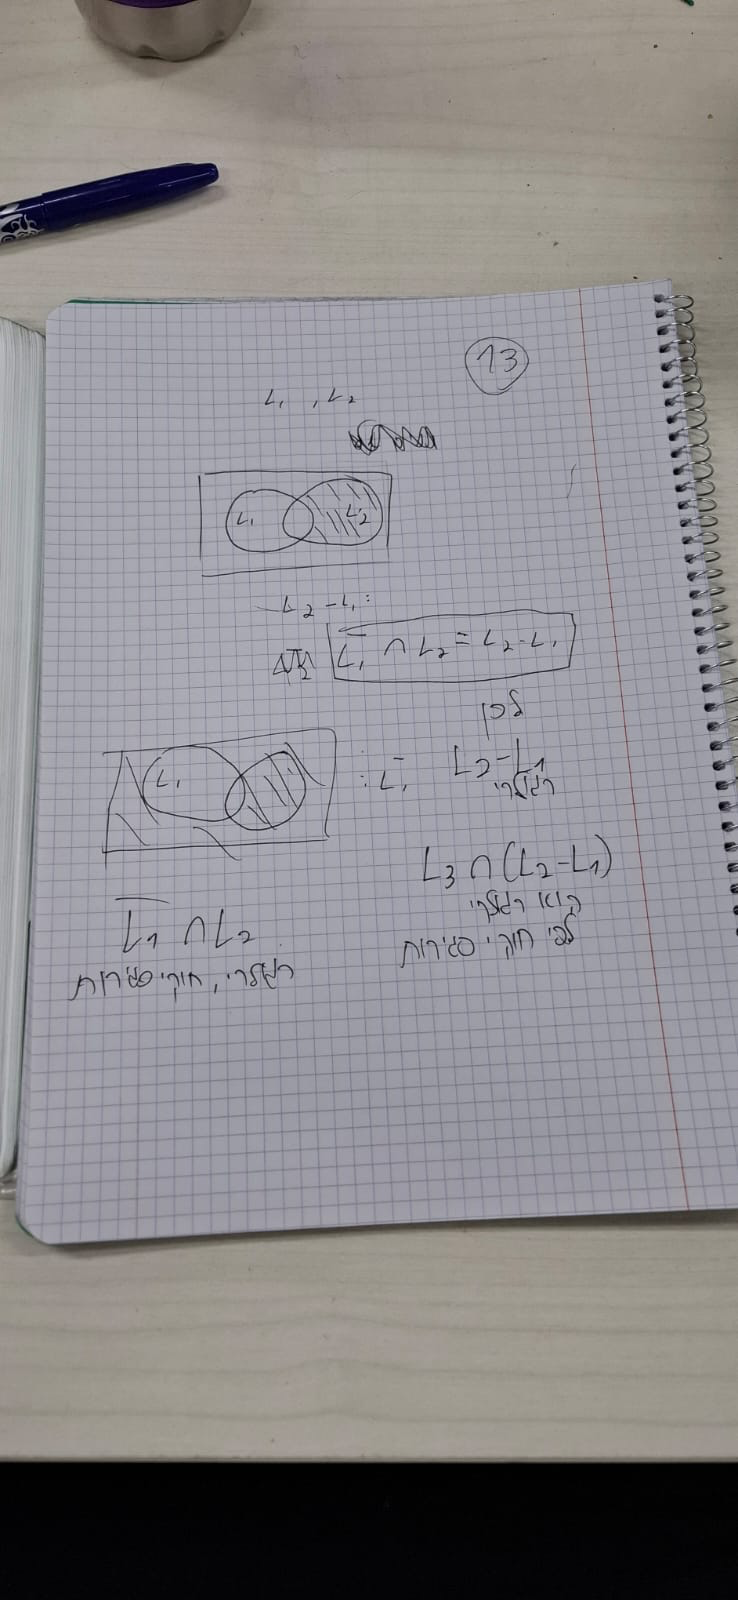 13
L₁ , L₂
L₁ L₂
L₂ - L₁ :
L̅₁ ∩ L₂ = L₂ - L₁
לכן
L₁ : L̅₁ L₂ - L₁
רגולרי
L₃ ∩ (L₂ - L₁)
הוא רגולרי
לפי חוקי סגירות
L̅₁ ∩ L₂
רגולרי, חוקי סגירות